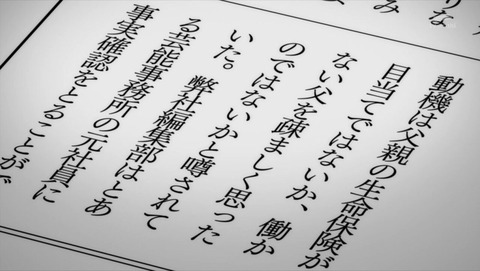 りな
み
動機は父親の生命保険が
目当てではないか、働か
ない父を疎ましく思った
のではないかと噂されて
いた。　弊社編集部はとあ
る芸能事務所の元社員に
事実確認をとることがで